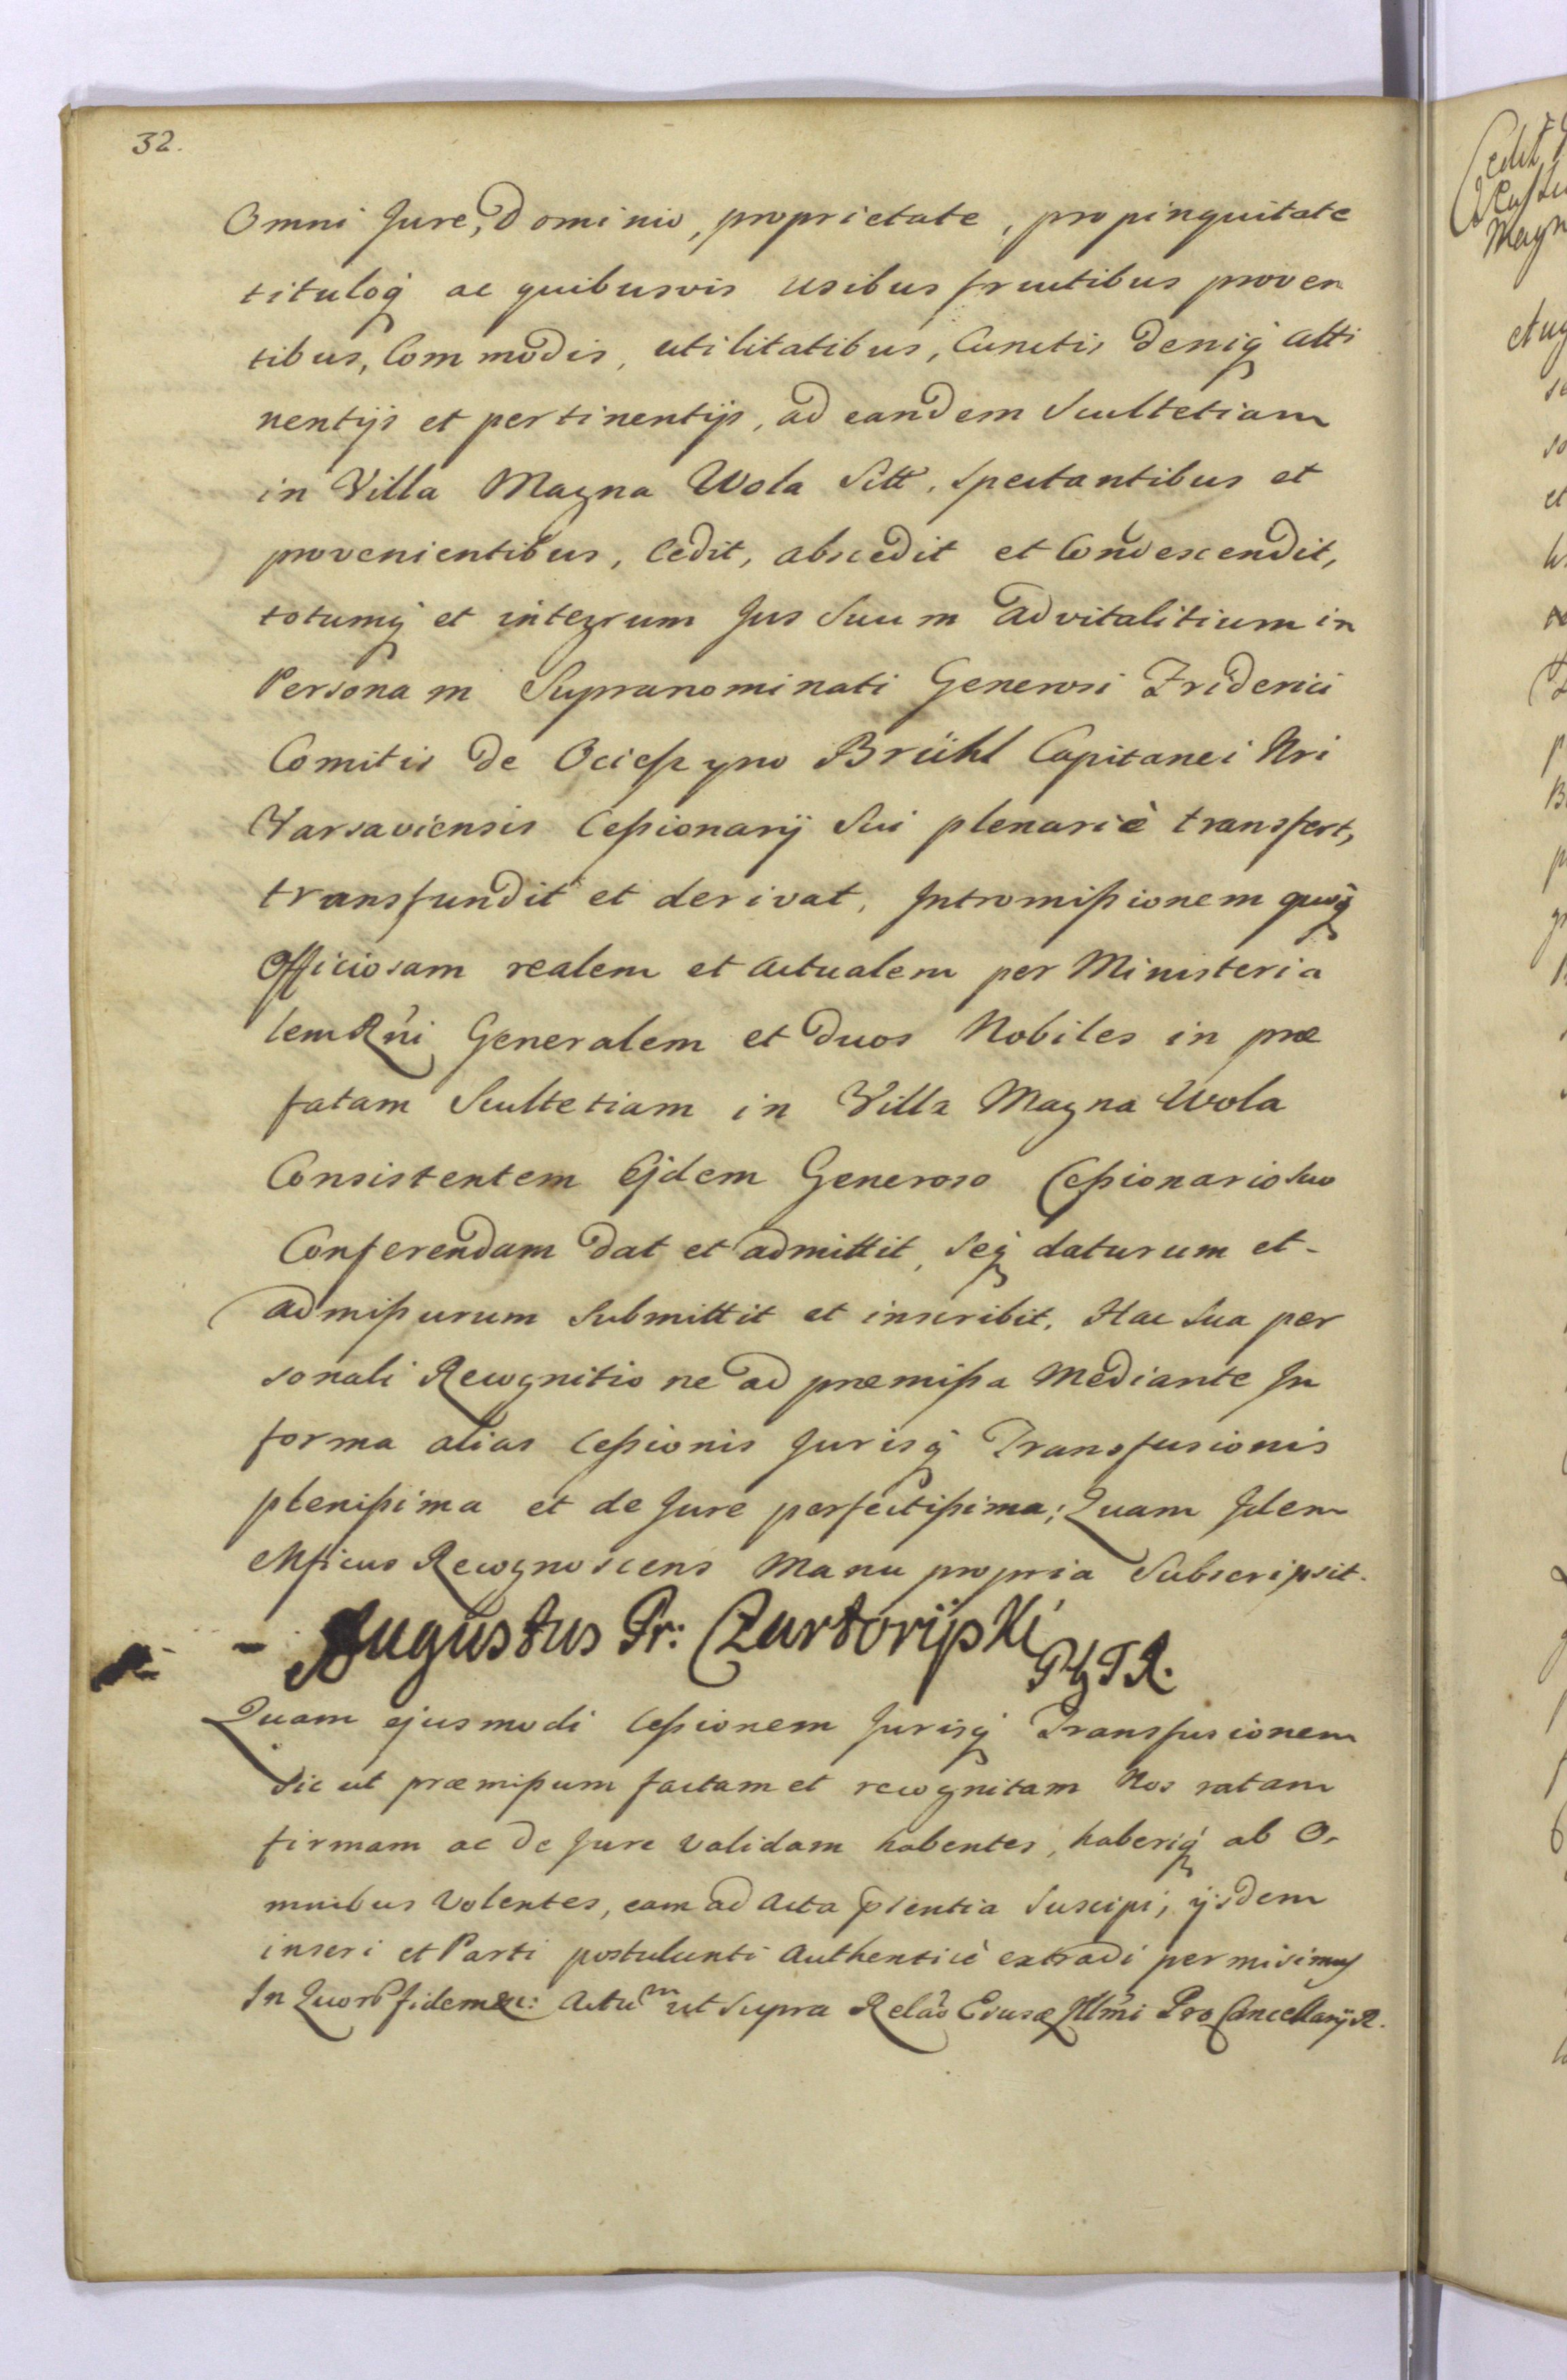 32.
Omni Jure, Dominio, proprietate, propinquitate
tituloq̃ ac quibusvis usibus fructibus proven
tibus, Commodis, utilitatibus, Cunctis deniq̃ atti
nentijs et pertinentijs, ad eandem Scultetiam
in Villa Magna Wola Sitt, spectantibus et
provenientibus, Cedit, abscedit et Condescendit,
totumq̃ et integrum Jus Suum advitalitium in
Personam Supranominati Generosi Friderici
Comitis de Ocieszyno Brühl Capitanei Nri
Varsaviensis Cessionarij Sui plenariè transfert,
transfundit et derivat, Intromissionem quoq̃
Officiosam realem et actualem per Ministeria
lem Rñi Generalem et duos Nobiles in præ
fatam Scultetiam in Villa Magna Wola
Consistentem Ejdem Generoso Cessionario suo
Conferendam dat et admittit, seq̃ daturum et
admissurum Submittit et inscribit. Hac sua per
sonali Recognitione ad præmissa mediante In
forma alias Cessionis Jurisq̃ Transfusionis
plenissima et de Jure perfectissima; Quam Idem
Mficus Recognoscens manu propria Subscripsit.
- Augustus Pr: Czartoryski
Quam ejusmodi Cessionem Jurisq̃ Transfusionem
Sic ut præmissum factam et recognitam Nos ratam
firmam ac de Jure validam habentes, haberiq̃ ab O-
mnibus volentes, eam ad Acta pñsentia Suscipi, ijsdem
inseri et Parti postulanti Authenticè extradi permisimus
In Quorũ fidem &c: Actum ut Supra Relao Ejusdæ Illmi Pro Cancellarij R.
Cedit
Magn